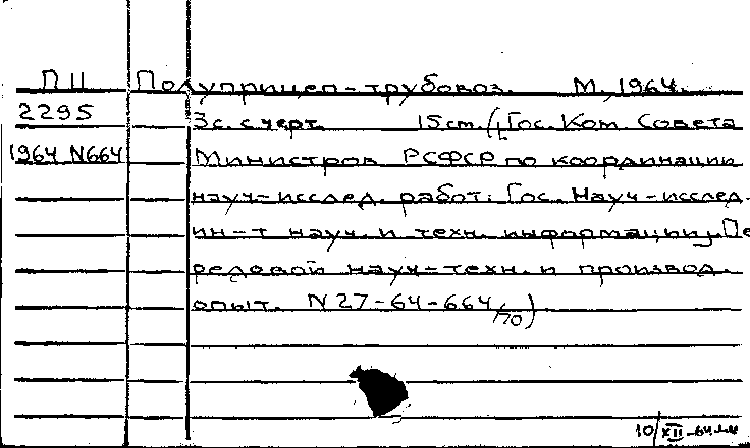 П11 Полуприцеп-трубовоз. М., 1964.
2295 3 с. с черт. 15 см. (Гос. Ком. Совета
1964 N664 Министров РСФСР по координации
науч-исслед. работ. Гос. Науч-исслед.
ин-т науч. и техн. информации. Пе
редовой науч-техн. и производ.
опыт. N 27-64-664/70)
10/XII-64